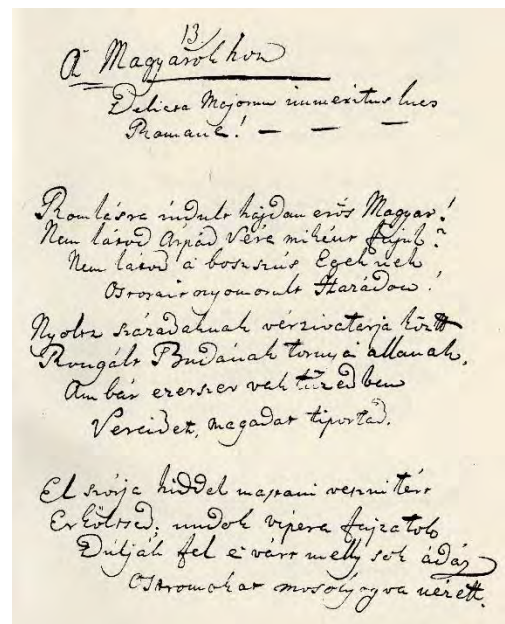 13.
A Magyarokhoz
Delicta Majorum immeritus lues
Romane! — — —
Romlásra indult hajdan erős Magyar!
Nem látod Árpád Véra miként fajúl?
Nem látod a bosszús Egeknek
Ostorait nyomorult Hazádon!
Nyoltz századaknak vérzivatarja közt
Rongált Budának tornyai állanak,
Ámbár ezerszer vak tűzedben
Vereidet, magadat tiportad.
El szórja hiddel mastani veszni tért
Erköltsed: undok vipera fajzatok
Dúlják fel e várt melly sok ádáz
Ostromokat mosolyogva nézett.